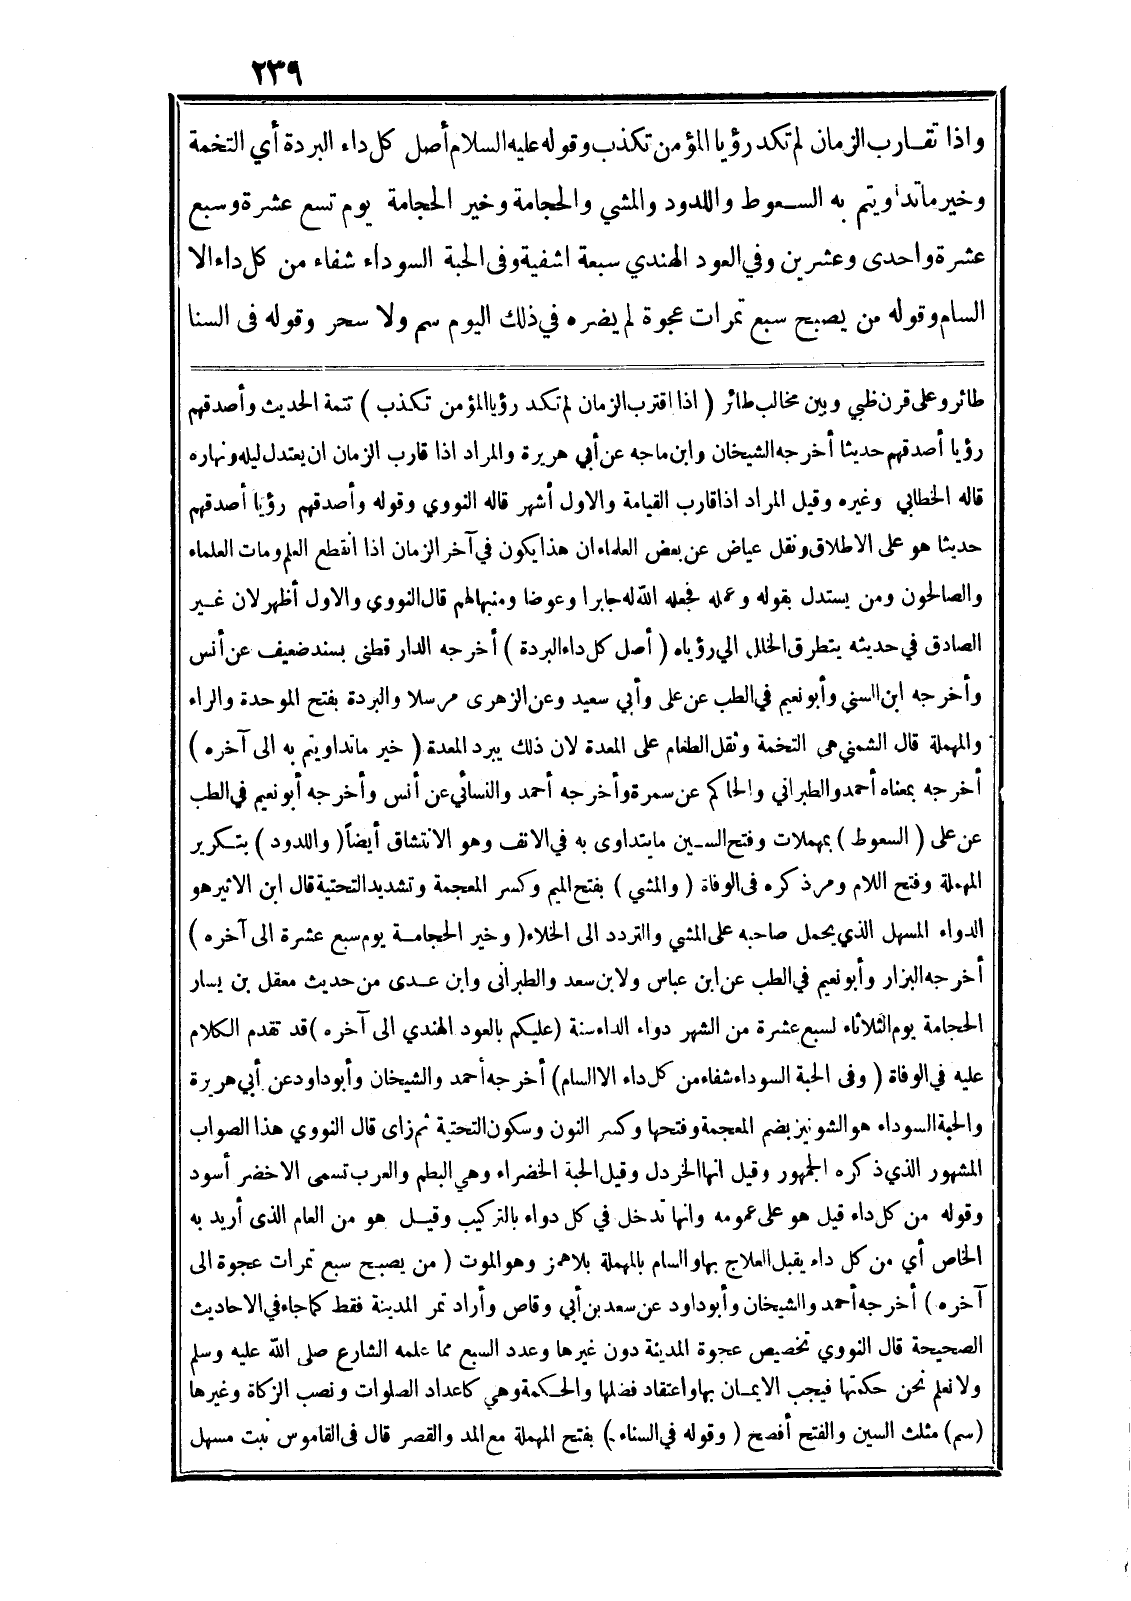 ٢٣٩
واذا تقارب الزمان لم تكد رؤيا المؤمن تكذب وقوله عليه السلام أصل كل داء البردة أي التخمة
وخير ما تداويتم به السعوط واللدود والمشي والحجامة وخير الحجامة يوم تسع عشرة وسبع
عشرة واحدى وعشرين وفي العود الهندي سبعة اشفية وفى الحبة السوداء شفاء من كل داء الا
السام وقوله من يصبح سبع تمرات عجوة لم يضره في ذلك اليوم سم ولا سحر وقوله فى السنا
طائر وعلى قرن ظبي وبين مخالب طائر ( اذا اقترب الزمان لم تكد رؤيا المؤمن تكذب ) تتمة الحديث وأصدقهم
رؤيا أصدقهم حديثا أخرجه الشيخان وابن ماجه عن أبي هريرة والمراد اذا قارب الزمان ان يعتدل ليله ونهاره
قاله الخطابي وغيره وقيل المراد اذا قارب القيامة والاول أشهر قاله النووي وقوله وأصدقهم رؤيا أصدقهم
حديثا هو على الاطلاق ونقل عياض عن بعض العلماء ان هذا يكون في آخر الزمان اذا انقطع العلم ومات العلماء
والصالحون ومن يستدل بقوله وعمله فجعله الله له جابرا وعوضا ومنبها لهم قال النووي والاول أظهر لان غير
الصادق في حديثه يتطرق الخلل الي رؤياه ( أصل كل داء البردة ) أخرجه الدار قطنى بسند ضعيف عن أنس
وأخرجه ابن السني وأبو نعيم في الطب عن على وأبي سعيد وعن الزهرى مرسلا والبردة بفتح الموحدة والراء
والمهملة قال الشمني هى التخمة وثقل الطعام على المعدة لان ذلك يبرد المعدة ( خير ما تداويتم به الى آخره )
أخرجه بمعناه أحمد والطبراني والحاكم عن سمرة وأخرجه أحمد والنسائي عن أنس وأخرجه أبو نعيم في الطب
عن على ( السعوط ) بمهملات وفتح السين ما يتداوى به في الانف وهو الانتشاق أيضاً ( واللدود ) بتكرير
المهملة وفتح اللام ومر ذكره فى الوفاة ( والمشي ) بفتح الميم وكسر المعجمة وتشديد التحتية قال ابن الاثير هو
الدواء المسهل الذي يحمل صاحبه على المشي والتردد الى الخلاء ( وخير الحجامة يوم سبع عشرة الى آخره )
أخرجه البزار وأبو نعيم في الطب عن ابن عباس ولابن سعد والطبرانى وابن عدى من حديث معقل بن يسار
الحجامة يوم الثلاثاء لسبع عشرة من الشهر دواء الداء سنة (عليكم بالعود الهندي الى آخره ) قد تقدم الكلام
عليه في الوفاة ( وفى الحبة السوداء شفاء من كل داء الا السام) أخرجه أحمد والشيخان وأبو داود عن أبي هريرة
والحبة السوداء هو الشونيز بضم المعجمة وفتحها وكسر النون وسكون التحتية ثم زاى قال النووي هذا الصواب
المشهور الذي ذكره الجمهور وقيل انها الخردل وقيل الحبة الخضراء وهي البطم والعرب تسمى الاخضر أسود
وقوله من كل داء قيل هو على عمومه وانها تدخل في كل دواء بالتركيب وقيل هو من العام الذى أريد به
الخاص أي من كل داء يقبل العلاج بها والسام بالمهملة بلا همز وهو الموت ( من يصبح سبع تمرات عجوة الى
آخره ) أخرجه أحمد والشيخان وأبو داود عن سعد بن أبي وقاص وأراد تمر المدينة فقط كما جاء في الاحاديث
الصحيحة قال النووي تخصيص عجوة المدينة دون غيرها وعدد السبع مما علمه الشارع صلى الله عليه وسلم
ولا نعلم نحن حكمتها فيجب الايمان بها واعتقاد فضلها والحكمة وهي كاعداد الصلوات ونصب الزكاة وغيرها
(سم) مثلث السين والفتح أفصح ( وقوله في السناء ) بفتح المهملة مع المد والقصر قال فى القاموس نبت مسهل